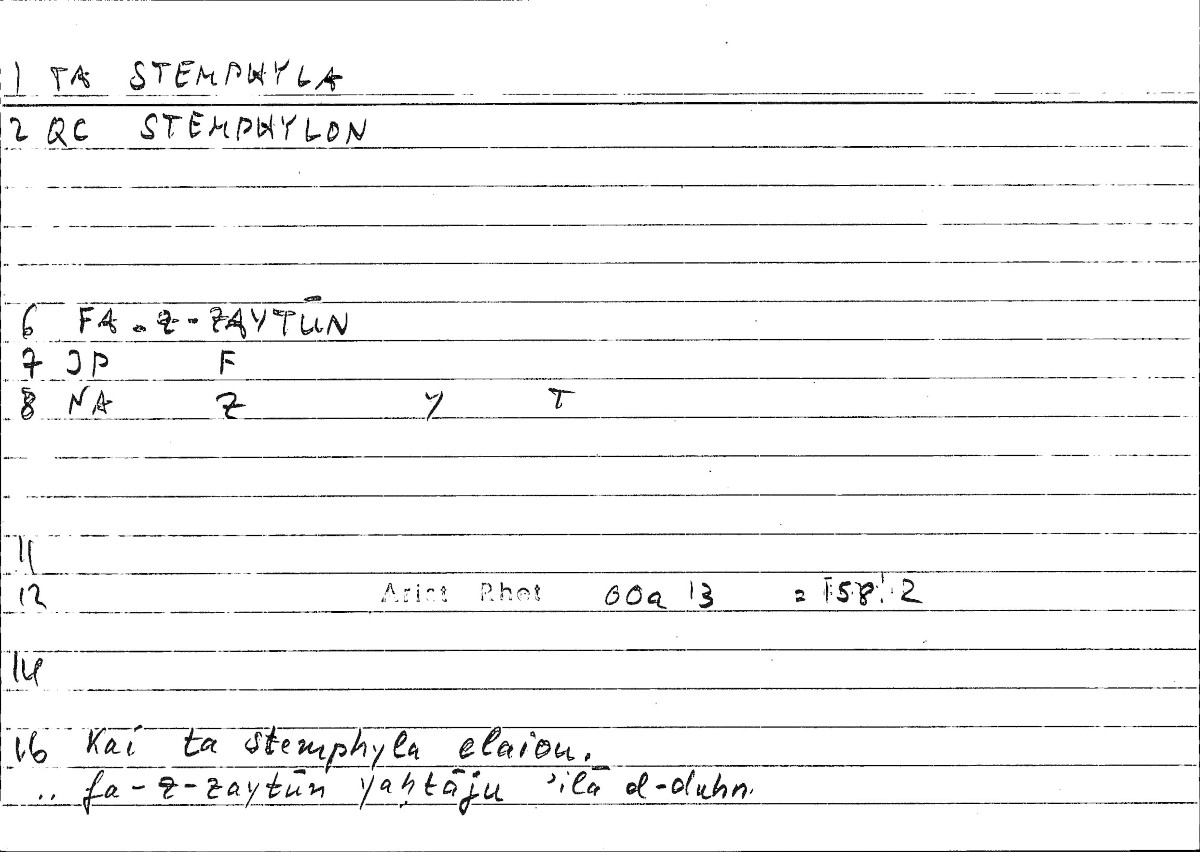 1 TA STEMPHYLA
2 QC STEMPHYLON
6 FA-Z-ZAYTŪN
7 JP F
8 NA Z Y T
11
12 Arist Rhet 00a 13 = 158,2
14
16 Kai ta stemphyla elaiou.
.. fa-z-zaytūn yaḥtāju 'ilā d-duhn.